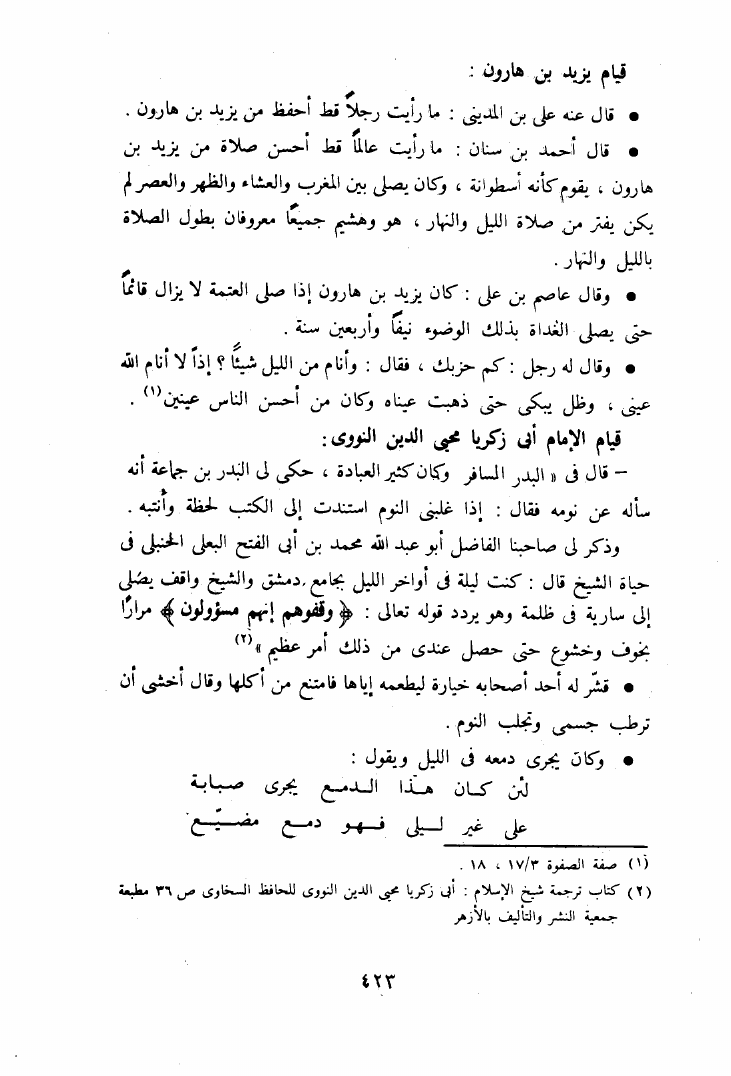 قيام يزيد بن هارون :
● قال عنه على بن المدينى : ما رأيت رجلاً قط أحفظ من يزيد بن هارون .
● قال أحمد بن سنان : ما رأيت عالمًا قط أحسن صلاة من يزيد بن
هارون ، يقوم كأنه أسطوانة ، وكان يصلى بين المغرب والعشاء والظهر والعصر لم
يكن يفتر من صلاة الليل والنهار ، هو وهشيم جميعًا معروفان بطول الصلاة
بالليل والنهار .
● وقال عاصم بن على : كان يزيد بن هارون إذا صلى العتمة لا يزال قائمًا
حتى يصلى الغداة بذلك الوضوء نيفًا وأربعين سنة .
● وقال له رجل : كم حزبك ، فقال : وأنام من الليل شيئًا ؟ إذاً لا أنام الله
عينى ، وظل يبكى حتى ذهبت عيناه وكان من أحسن الناس عينين(١) .
قيام الإمام أبى زكريا محيى الدين النووى :
– قال فى « البدر المسافر وكان كثير العبادة ، حكى لى البدر بن جماعة أنه
سأله عن نومه فقال : إذا غلبنى النوم استندت إلى الكتب لحظة وأنتبه .
وذكر لى صاحبنا الفاضل أبو عبد الله محمد بن أبى الفتح البعلى الحنبلى فى
حياة الشيخ قال : كنت ليلة فى أواخر الليل بجامع دمشق والشيخ واقف يصلى
إلى سارية فى ظلمة وهو يردد قوله تعالى : ﴿ وقفوهم إنهم مسؤولون ﴾ مرارًا
بخوف وخشوع حتى حصل عندى من ذلك أمر عظيم »(٢)
● قشّر له أحد أصحابه خيارة ليطعمه إياها فامتنع من أكلها وقال أخشى أن
ترطب جسمى وتجلب النوم .
● وكان يجرى دمعه فى الليل ويقول :
لئن كان هذا الدمع يجرى صبابة
على غير ليلى فهو دمع مضيّع
(١) صفة الصفوة ١٧/٣ ، ١٨ .
(٢) كتاب ترجمة شيخ الإسلام : أبى زكريا محيى الدين النووى للحافظ السخاوى ص ٣٦ مطبعة
جمعية النشر والتأليف بالأزهر
٤٢٣